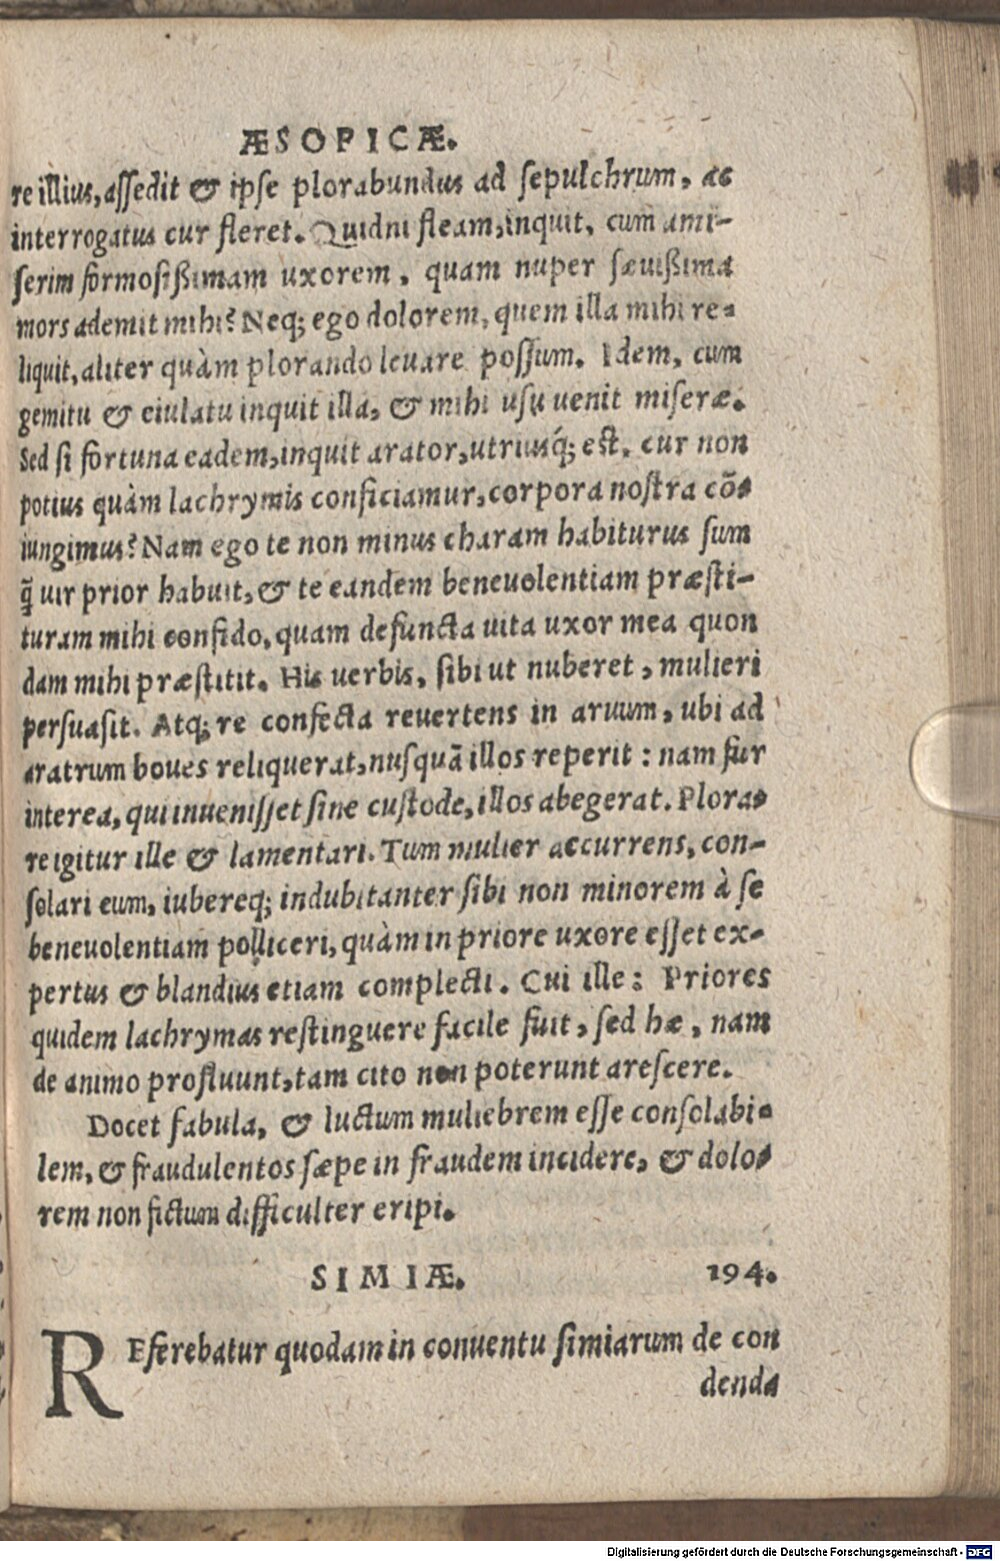 ÆSOPICÆ.
re illius, assedit & ipse plorabundus ad sepulchrum, ac
interrogatus cur fleret. Quidni fleam, inquit, cum ami-
serim formosißimam uxorem, quam nuper sæuißima
mors ademit mihi? Neq; ego dolorem, quem illa mihi re-
liquit, aliter quàm plorando leuare possum. Idem, cum
gemitu & eiulatu inquit illa, & mihi usu uenit miseræ.
Sed si fortuna eadem, inquit arator, utriusq́; est, cur non
potius quàm lachrymis conficiamur, corpora nostra cõ-
iungimus? Nam ego te non minus charam habiturus sum
q̃ uir prior habuit, & te eandem beneuolentiam præsti-
turam mihi confido, quam defuncta uita uxor mea quon
dam mihi præstitit. His uerbis, sibi ut nuberet, mulieri
persuasit. Atq; re confecta reuertens in aruum, ubi ad
aratrum boues reliquerat, nusquã illos reperit: nam fur
interea, qui inuenisset sine custode, illos abegerat. Plora-
re igitur ille & lamentari. Tum mulier accurrens, con-
solari eum, iubereq; indubitanter sibi non minorem à se
beneuolentiam polliceri, quàm in priore uxore esset ex-
pertus & blandius etiam complecti. Cui ille: Priores
quidem lachrymas restinguere facile fuit, sed hæ, nam
de animo profluunt, tam cito non poterunt arescere.
Docet fabula, & luctum muliebrem esse consolabi-
lem, & fraudulentos sæpe in fraudem incidere, & dolo-
rem non fictum difficulter eripi.
SIMIÆ. 194.
REferebatur quodam in conuentu simiarum de con
denda
Digitalisierung gefördert durch die Deutsche Forschungsgemeinschaft - DFG